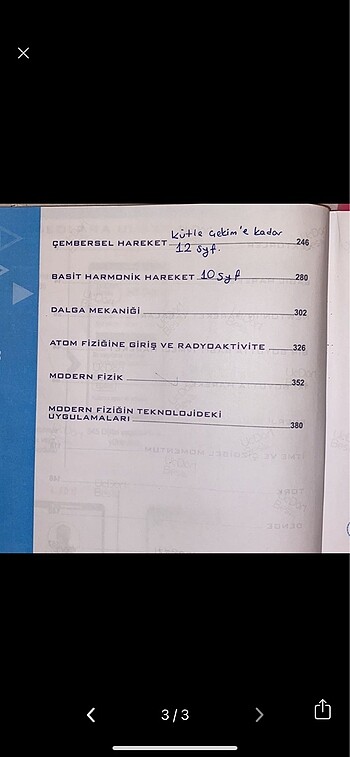 kütle çekim'e kadar
ÇEMBERSEL HAREKET 12 syf. 246
BASİT HARMONİK HAREKET 10 syf 280
DALGA MEKANİĞİ 302
ATOM FİZİĞİNE GİRİŞ VE RADYOAKTİVİTE 326
MODERN FİZİK 352
MODERN FİZİĞİN TEKNOLOJİDEKİ
UYGULAMALARI 380
3/3